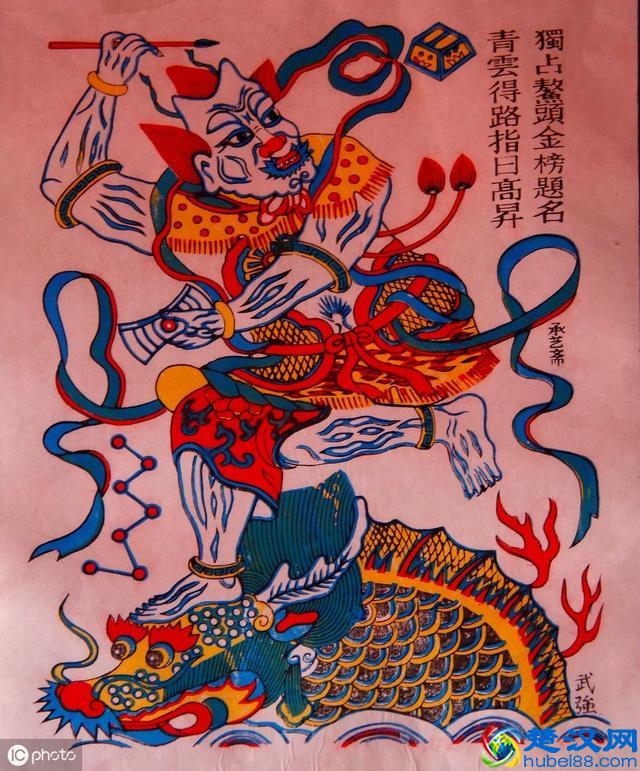 獨占鰲頭金榜題名
青雲得路指日高昇
承艺斋
武強
IC photo
楚汉网
hubei88.com